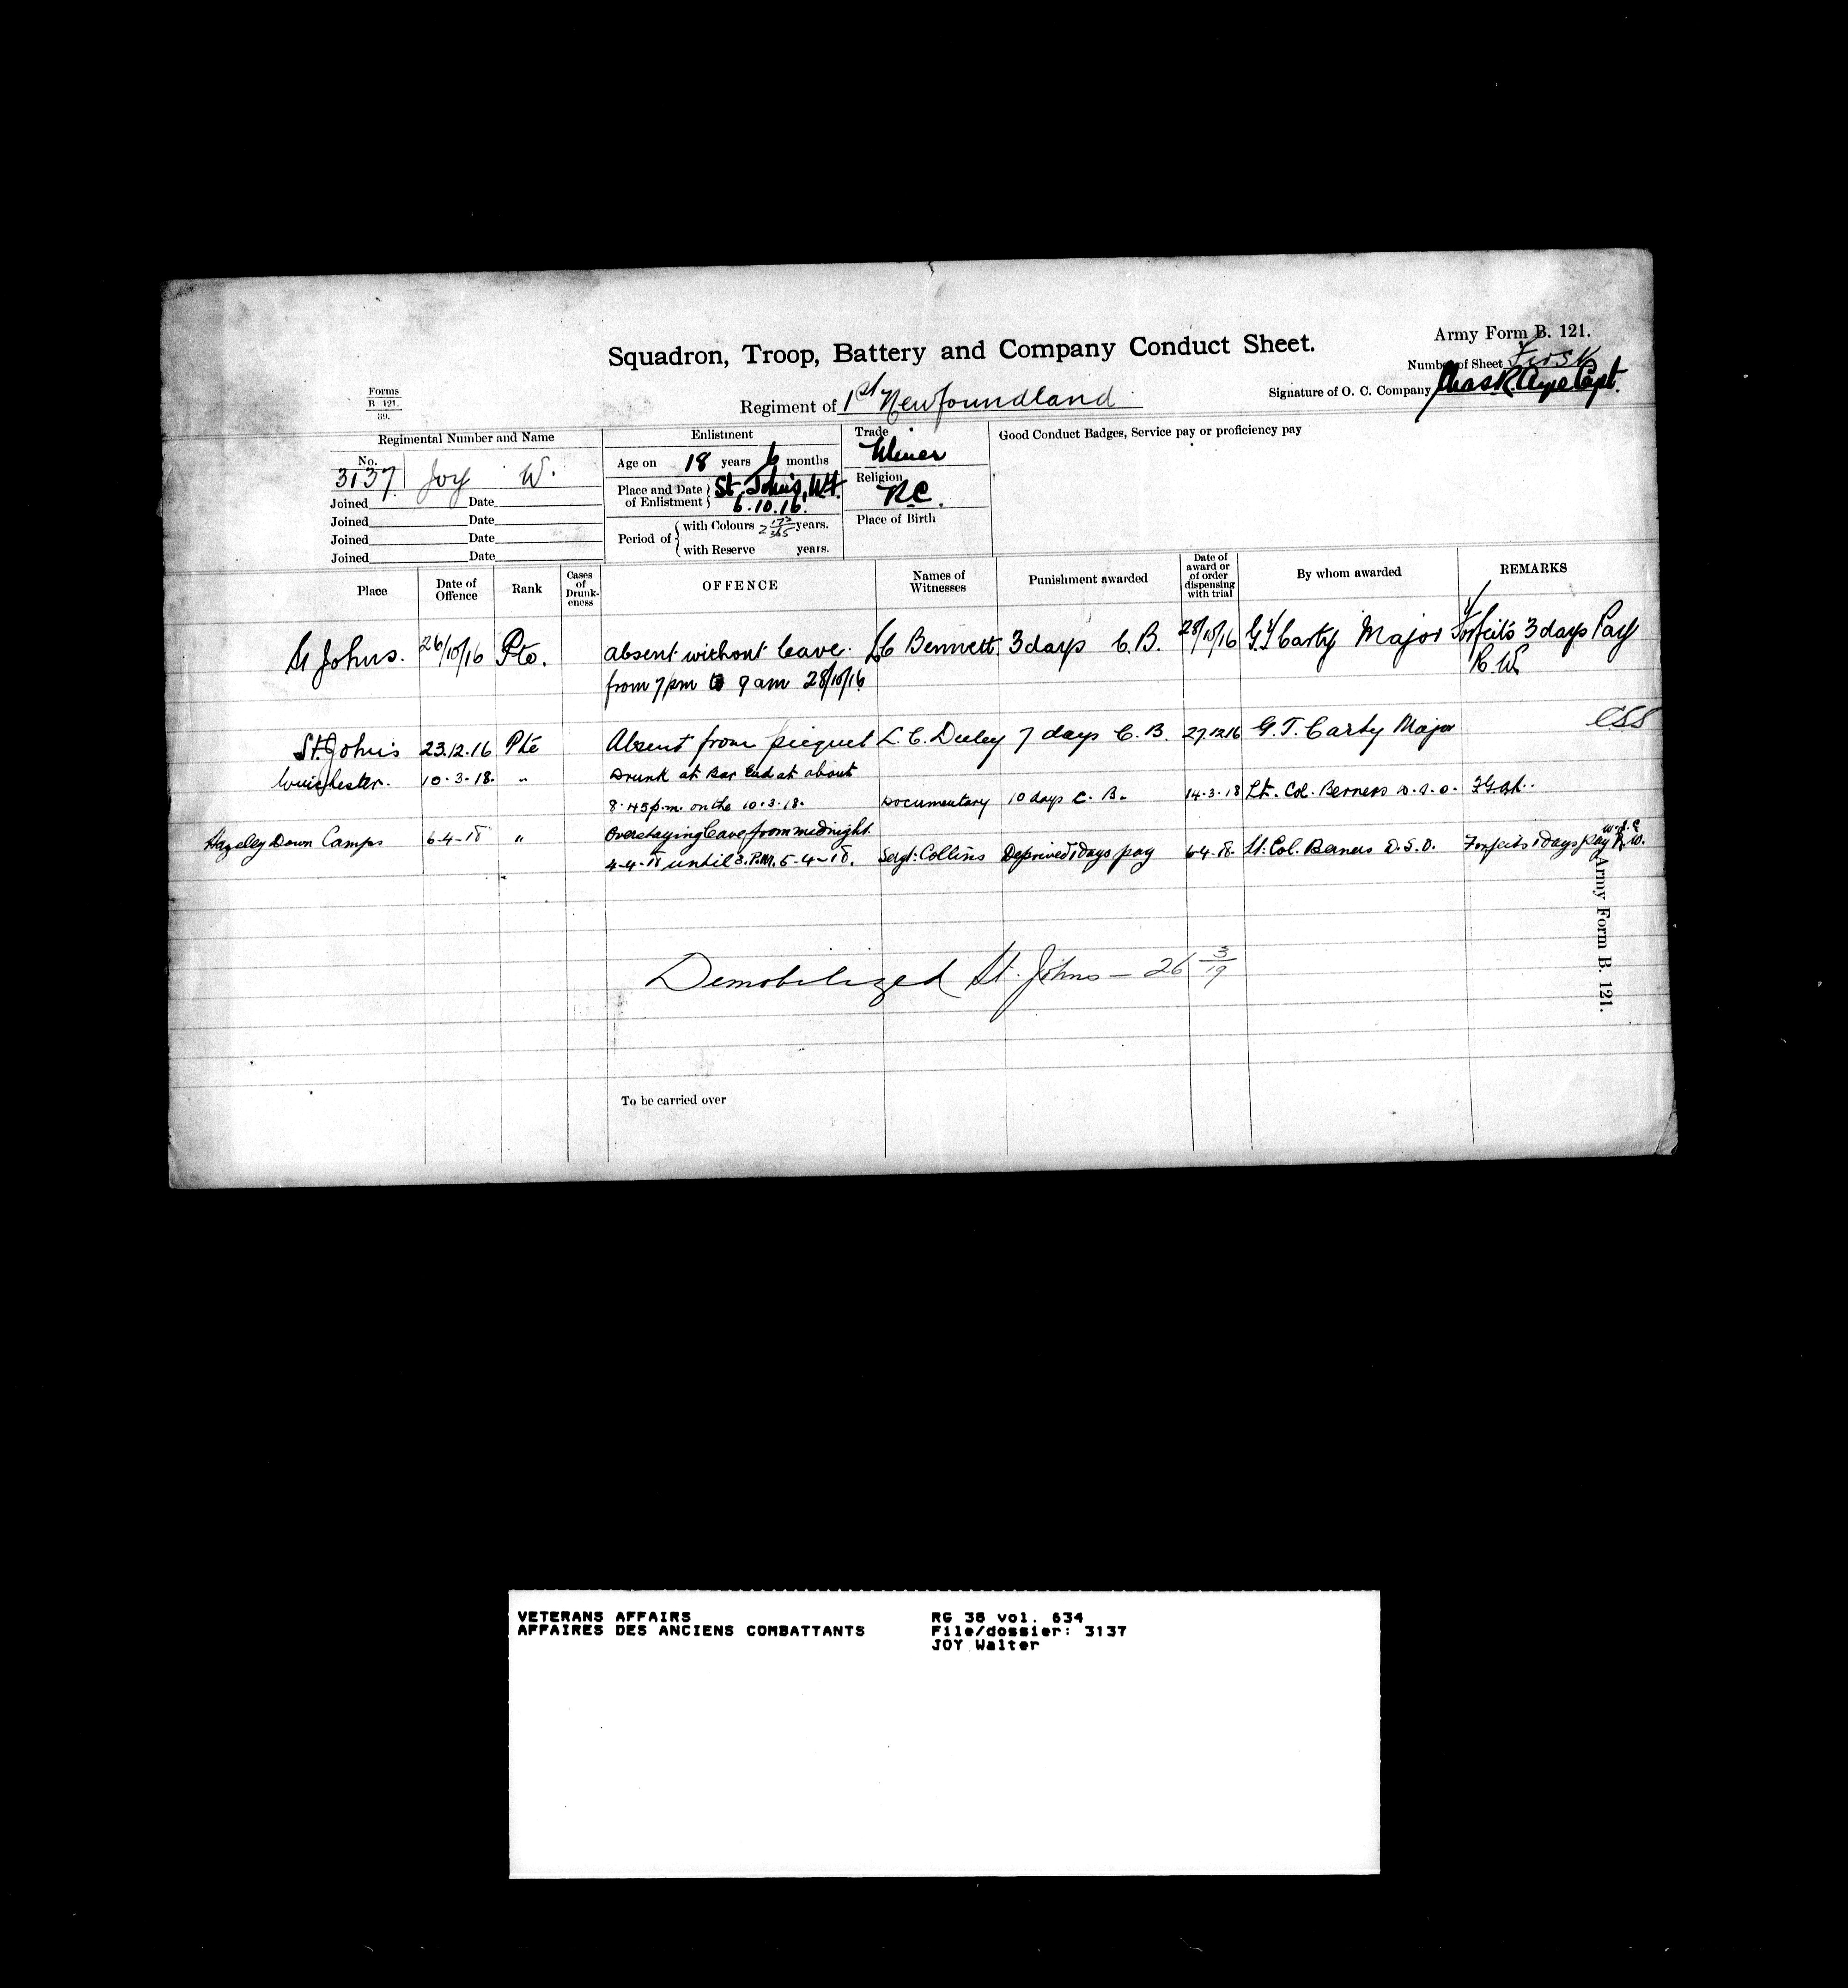 Army Form B. 121.
Squadron, Troop, Battery and Company Conduct Sheet.
Number of Sheet First
Signature of O. C. Company Chas R. Ayre Capt.
Forms
B 121.
39.
Regiment of 1st Newfoundland
Regimental Number and Name
Enlistment
Trade
Miner
Good Conduct Badges, Service pay or proficiency pay
No.
3137 Joy W.
Age on 18 years 6 months
Religion
R.C.
Joined Date
Place and Date of Enlistment St. John's,
6.10.16.
Joined Date
Place of Birth
Joined Date
Period of with Colours 2 172/365 years.
with Reserve years.
Joined Date
Place
Date of Offence
Rank
Cases of Drunk-eness
OFFENCE
Names of Witnesses
Punishment awarded
Date of award or of order dispensing with trial
By whom awarded
REMARKS
St Johns. 26/10/16 Pte. absent without leave. L/C Bennett. 3 days C.B. 28/10/16 G.T Carty Major Forfeits 3 days Pay
from 7 pm to 9 am 28/10/16 R.W.
St. John's 23.12.16 Pte Absent from picquet L.C. Deeley 7 days C.B. 27.12.16 G.T. Carty Major
Winchester. 10.3.18. " Drunk at Bar End at about
8.45 p.m. on the 10.3.18. Documentary 10 days C.B. 14.3.18 Lt. Col. Berners D.S.O.
Hazeley Down Camp 6-4-18 " Overstaying leave from midnight
4-4-18 until 3.P.M. 5-4-18. Sergt. Collins Deprived 1 days pay 6-4-18. Lt. Col. Berners D.S.O. Forfeits 1 days pay R.W.
Army Form B. 121.
Demobilized St. Johns — 26 3/19
To be carried over
VETERANS AFFAIRS RG 38 vol. 634
AFFAIRES DES ANCIENS COMBATTANTS File/dossier: 3137
JOY Walter